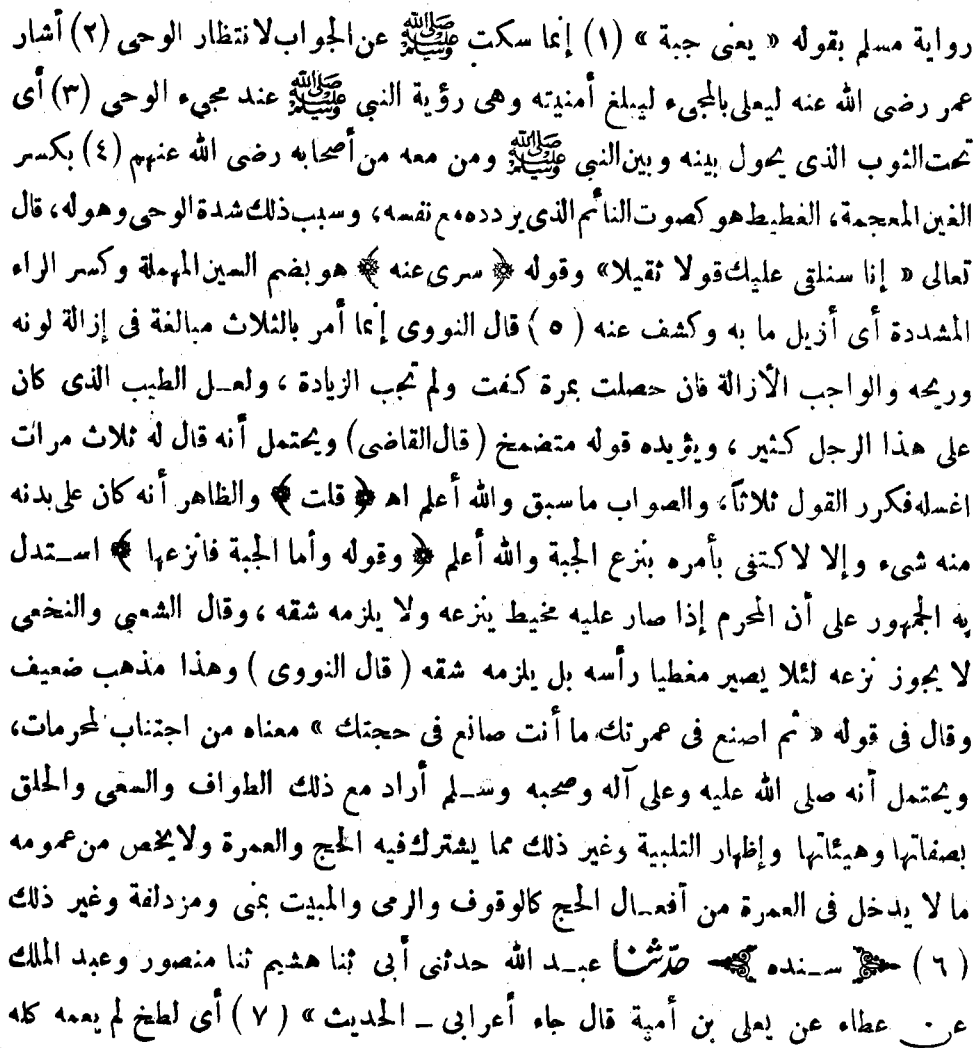 رواية مسلم بقوله « يعنى جبة » (١) إنما سكت ﷺ عن الجواب لانتظار الوحى (٢) أشار
عمر رضى الله عنه ليعلى بالمجىء ليبلغ أمنيته وهى رؤية النبي ﷺ عند مجىء الوحى (٣) أى
تحت الثوب الذى يحول بينه وبين النبي ﷺ ومن معه من أصحابه رضى الله عنهم (٤) بكسر
الغين المعجمة، الغطيط هو كصوت النائم الذى يردده مع نفسه، وسبب ذلك شدة الوحى وهوله، قال
تعالى « إنا سنلقى عليك قولا ثقيلا» وقوله ﴿ سرى عنه ﴾ هو بضم السين المهملة وكسر الراء
المشددة أى أزيل ما به وكشف عنه (٥) قال النووى إنما أمر بالثلاث مبالغة فى إزالة لونه
وريحه والواجب الأزالة فان حصلت بمرة كفت ولم تجب الزيادة ، ولعل الطيب الذى كان
على هذا الرجل كثير ، ويؤيده قوله متضمخ (قال القاضى) ويحتمل أنه قال له ثلاث مرات
اغسله فكرر القول ثلاثاً، والصواب ماسبق والله أعلم اه ﴿ قلت ﴾ والظاهر أنه كان على بدنه
منه شىء وإلا لاكتفى بأمره بنزع الجبة والله أعلم ﴿ وقوله وأما الجبة فانزعها ﴾ استدل
به الجمهور على أن المحرم إذا صار عليه مخيط ينزعه ولا يلزمه شقه ، وقال الشعبي والنخعى
لا يجوز نزعه لئلا يصير مغطيا رأسه بل يلزمه شقه ( قال النووى ) وهذا مذهب ضعيف
وقال فى قوله « ثم اصنع فى عمرتك ما أنت صانع فى حجتك » معناه من اجتناب المحرمات،
ويحتمل أنه صلى الله عليه وعلى آله وصحبه وسلم أراد مع ذلك الطواف والسعى والحلق
بصفاتها وهيئاتها وإظهار التلبية وغير ذلك مما يشترك فيه الحج والعمرة ولا يخص من عمومه
ما لا يدخل فى العمرة من أفعال الحج كالوقوف والرمى والمبيت بمنى ومزدلفة وغير ذلك
(٦) ﴿ سنده ﴾ حدثنا عبد الله حدثنى أبى ثنا هشيم ثنا منصور وعبد الملك
عن عطاء عن يعلى بن أمية قال جاء أعرابى ـ الحديث » (٧) أى لطخ لم يعمه كله